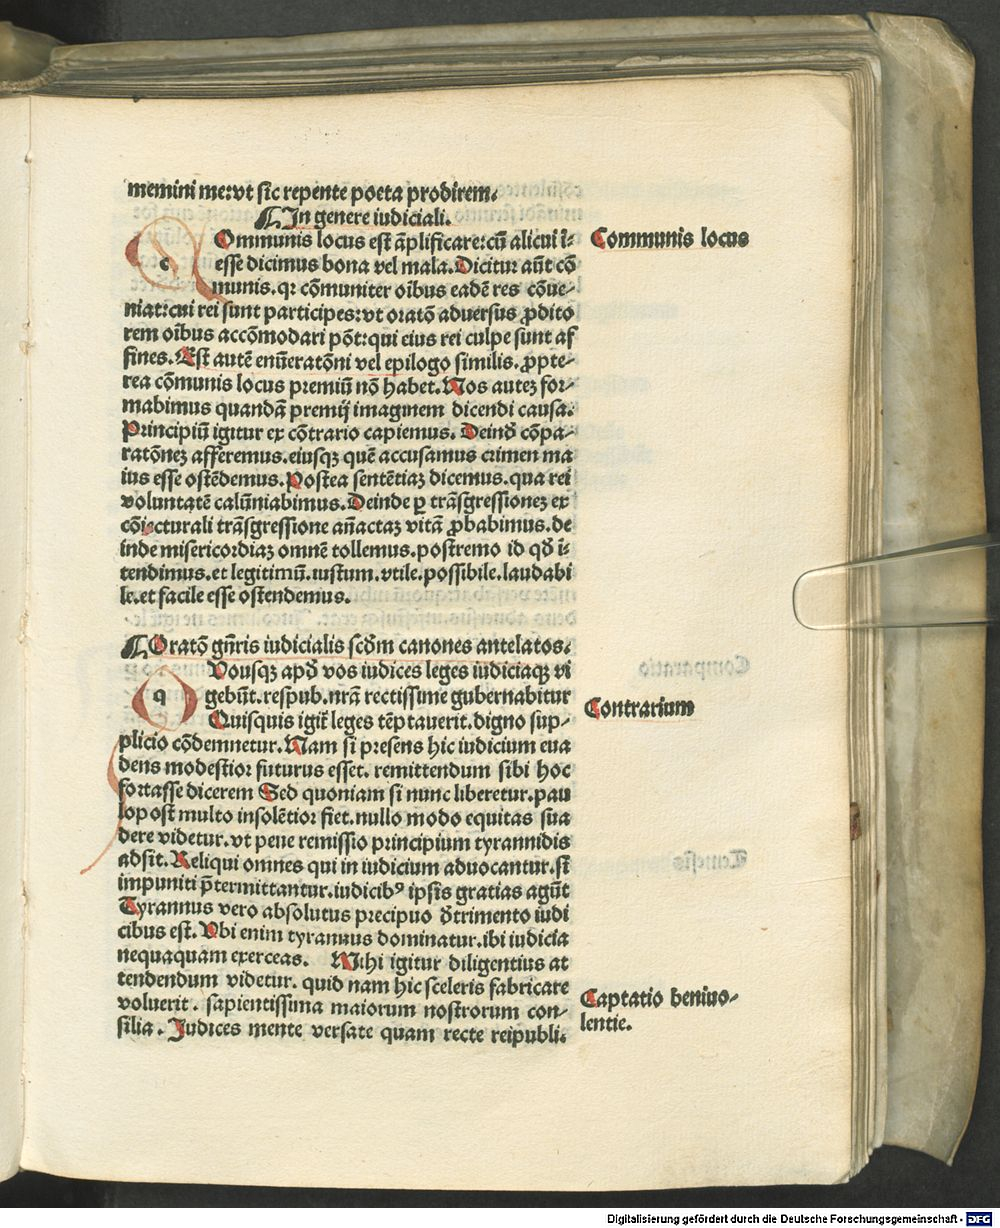 memini me:vt sic repente poeta prodirem.
¶In genere iudiciali.
c Ommunis locus est āplificare:cū alicui i-
esse dicimus bona vel mala.Dicitur aūt cō
munis.qr cōmuniter oībus eadē res cōue-
niat:cui rei sunt participes:vt oratō aduersus ꝓdito
rem oībus accōmodari pōt:qui eius rei culpe sunt af
fines.Est autē enūeratōni vel epilogo similis.ꝓpte-
rea cōmunis locus premiū nō habet.Nos auteꝫ for-
mabimus quandā premij imaginem dicendi causa.
Principiū igitur ex cōtrario capiemus.Deinď cōpa-
ratōneꝫ afferemus.eiusqꝫ quē accusamus crimen ma
ius esse ostēdemus.Postea sentētiaꝫ dicemus.qua rei
voluntatē calūniabimus.Deinde ꝑ trāsgressioneꝫ ex
cōiecturali trāsgressione añactaꝫ vitā ꝓbabimus.de
inde misericordiaꝫ omnē tollemus.postremo id qď ī-
tendimus.et legitimū.iustum.vtile.possibile.laudabi
le.et facile esse ostendemus.
¶Oratō gñris iudicialis scďm canones antelatos.
q Vousqꝫ apď vos iudices leges iudiciaqꝫ vi
gebūt.respub.nrā rectissime gubernabitur
Quisquis igit̄ leges tēptauerit.digno sup-
plicio cōdemnetur.Nam si presens hic iudicium eua
dens modestior futurus esset. remittendum sibi hoc
fortasse dicerem Sed quoniam si nunc liberetur.pau
lopost multo insolētior fiet.nullo modo equitas sua
dere videtur.vt pene remissio principium tyrannidis
adsit.Reliqui omnes qui in iudicium aduocantur.si
impuniti p̄termittantur.iudicibꝰ ipsis gratias agūt
Tyrannus vero absolutus precipuo ďtrimento iudi
cibus est.Vbi enim tyrannus dominatur.ibi iudicia
nequaquam exerceas. Mihi igitur diligentius at
tendendum videtur. quid nam hic sceleris fabricare
voluerit. sapientissima maiorum nostrorum con-
silia. Iudices mente versate quam recte reipubli.
Communis locus
Contrarium
Captatio beniuo-
lentie.
Digitalisierung gefördert durch die Deutsche Forschungsgemeinschaft - DFG